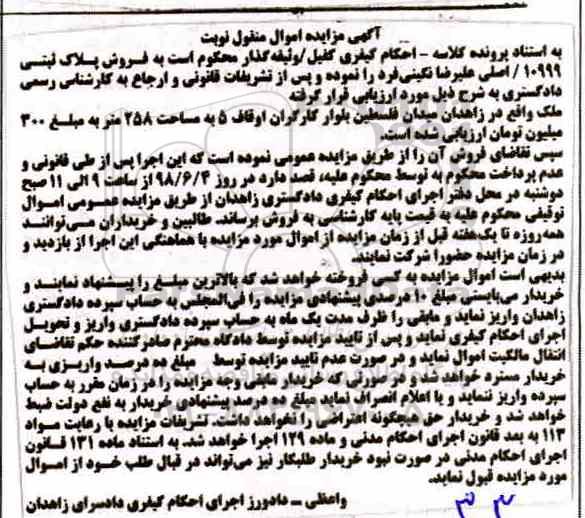 آگهی مزایده اموال منقول نوبت
به استناد پرونده کلاسه - احکام کیفری کفیل/وثیقه‌گذار محکوم است به فروش پلاک ثبتی
۱۰۹۹۹ / اصلی علیرضا نگینی‌فرد را نموده و پس از تشریفات قانونی و ارجاع به کارشناسی رسمی
دادگستری به شرح ذیل مورد ارزیابی قرار گرفته
ملک واقع در زاهدان میدان فلسطین بلوار کارگران اوقاف ۵ به مساحت ۲۵۸ متر به مبلغ ۳۰۰
میلیون تومان ارزیابی شده است.
سپس تقاضای فروش آن را از طریق مزایده عمومی نموده است که این اجرا پس از طی قانونی و
عدم پرداخت محکوم به توسط محکوم علیه، قصد دارد در روز ۹۸/۶/۴ از ساعت ۹ الی ۱۱ صبح
دوشنبه در محل دفتر اجرای احکام کیفری دادگستری زاهدان از طریق مزایده عمومی اموال
توقیفی محکوم علیه به قیمت پایه کارشناسی به فروش برساند. طالبین و خریداران می‌توانند
همه‌روزه تا یک‌هفته قبل از زمان مزایده از اموال مورد مزایده با هماهنگی این اجرا بازدید و
در زمان مزایده حضورا شرکت نمایند.
بدیهی است اموال مزایده به کسی فروخته خواهد شد که بالاترین مبلغ را پیشنهاد نمایند و
خریدار می‌بایستی مبلغ ۱۰ درصدی پیشنهادی مزایده را فی‌المجلس به حساب سپرده دادگستری
زاهدان واریز نماید و مابقی را ظرف مدت یک ماه به حساب سپرده دادگستری واریز و تحویل
اجرای احکام کیفری نماید و پس از تایید مزایده توسط دادگاه محترم صادرکننده حکم تقاضای
انتقال مالکیت اموال نماید و در صورت عدم تایید مزایده توسط مبلغ ده درصد واریزی به
خریدار مسترد خواهد شد و در صورتی که خریدار مابقی وجه مزایده را در زمان مقرر به حساب
سپرده واریز ننماید و یا اعلام انصراف نماید مبلغ ده درصد پیشنهادی خریدار به نفع دولت ضبط
خواهد شد و خریدار حق هیچگونه اعتراضی را نخواهد داشت. تشریفات مزایده با رعایت مواد
۱۱۳ به بعد قانون اجرای احکام مدنی و ماده ۱۲۹ اجرا خواهد شد. به استناد ماده ۱۳۱ قانون
اجرای احکام مدنی در صورت نبود خریدار طلبکار نیز می‌تواند در قبال طلب خود از اموال
مورد مزایده قبول نماید.
واعظی - دادورز اجرای احکام کیفری دادسرای زاهدان